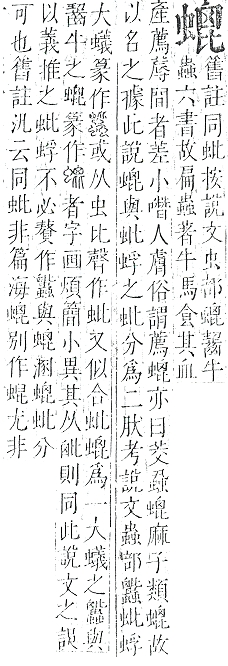 螕
舊註同蚍按說文虫部螕齧牛
蟲六書故扁蟲著牛馬食其血
產薦蓐間者差小噆人膚俗謂薦螕亦曰茭蝨螕麻子類螕故
以名之據此說螕與蚍蜉之蚍分爲二肰考說文蟲部蠶蚍蜉
大螘篆作或从虫比聲作蚍又似合蚍螕爲一大螘之與
齧牛之螕篆作者字画煩簡小異其从㲋則同此說文之誤
以義推之蚍蜉不必贅作與螕溷螕蚍分
可也舊註汎云同蚍非篇海螕別作蜫尤非